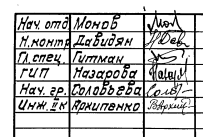 Нач. отд Монов Мон
Н.контр Давидян
Гл.спец. Гитман
ГИП Назарова Назар
Нач. гр. Соловьева Солов
Инж. IIк Яркипенко